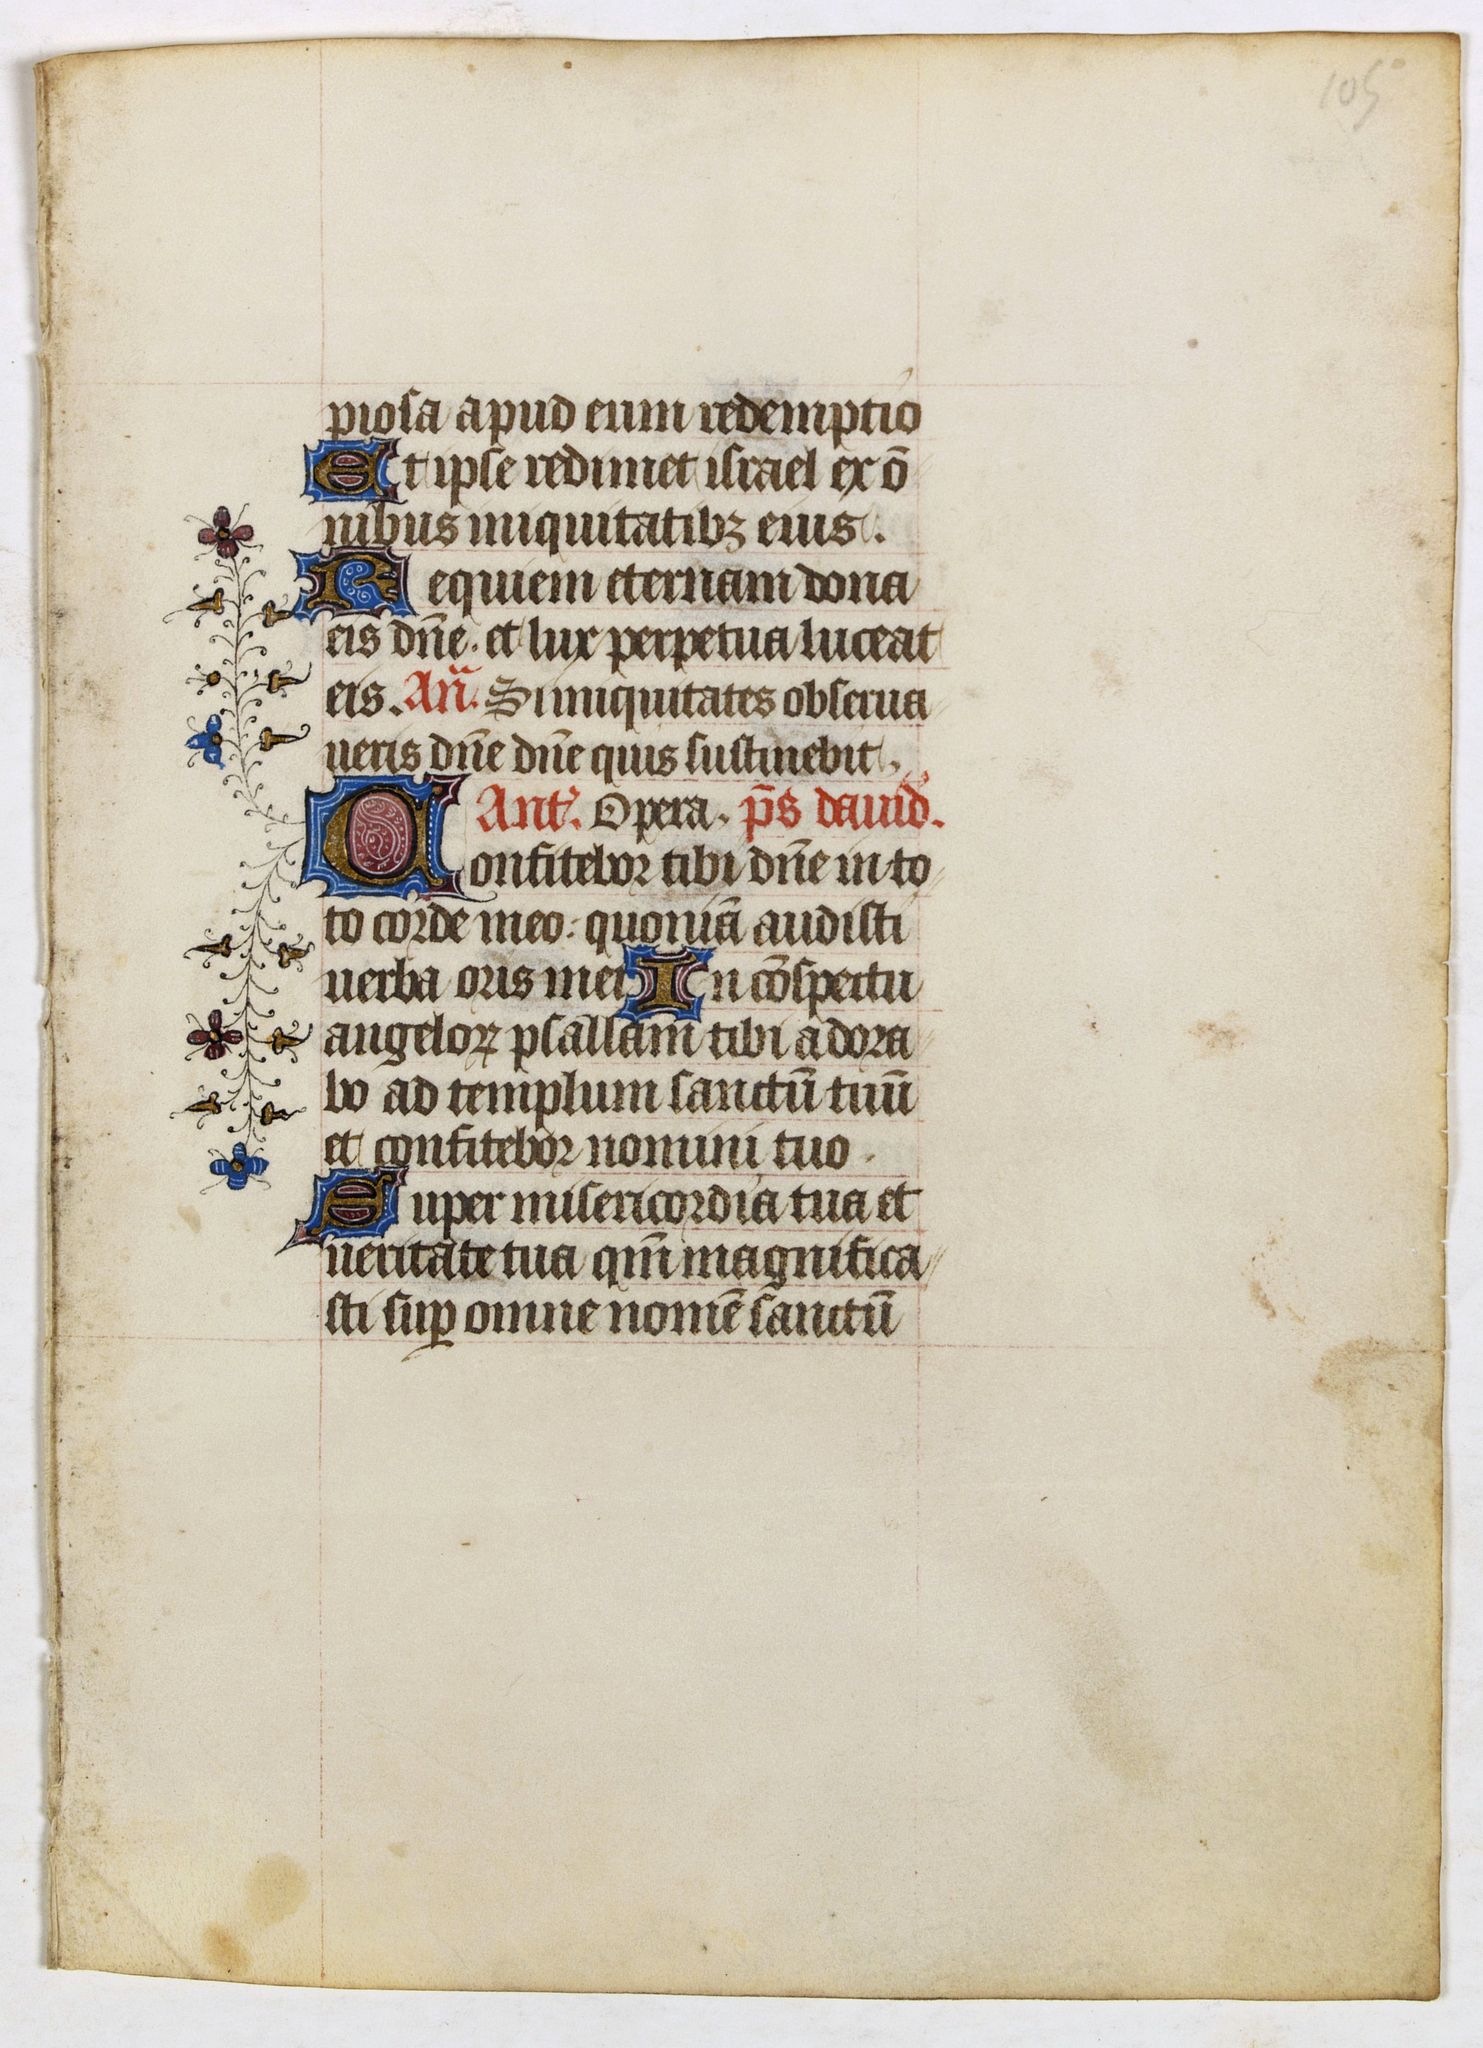 105
piosa apud eum redemptio
Et ipse redimet israel ex o̅
nibus iniquitatibꝫ eius.
Requiem eternam dona
eis dn̅e. et lux perpetua luceat
eis. An̅. Si iniquitates obserua
ueris dn̅e dn̅e quis sustinebit.
Ant'. Opera. ps̅ dauid.
Confitebor tibi dn̅e in to
to corde meo: quonia̅ audisti
uerba oris mei In co̅spectu
angeloꝝ psallam tibi adora
bo ad templum sanctu̅ tuu̅
et confitebor nomini tuo.
Super misericordia tua et
ueritate tua qm̅ magnifica
sti suꝑ omne nome̅ sanctu̅